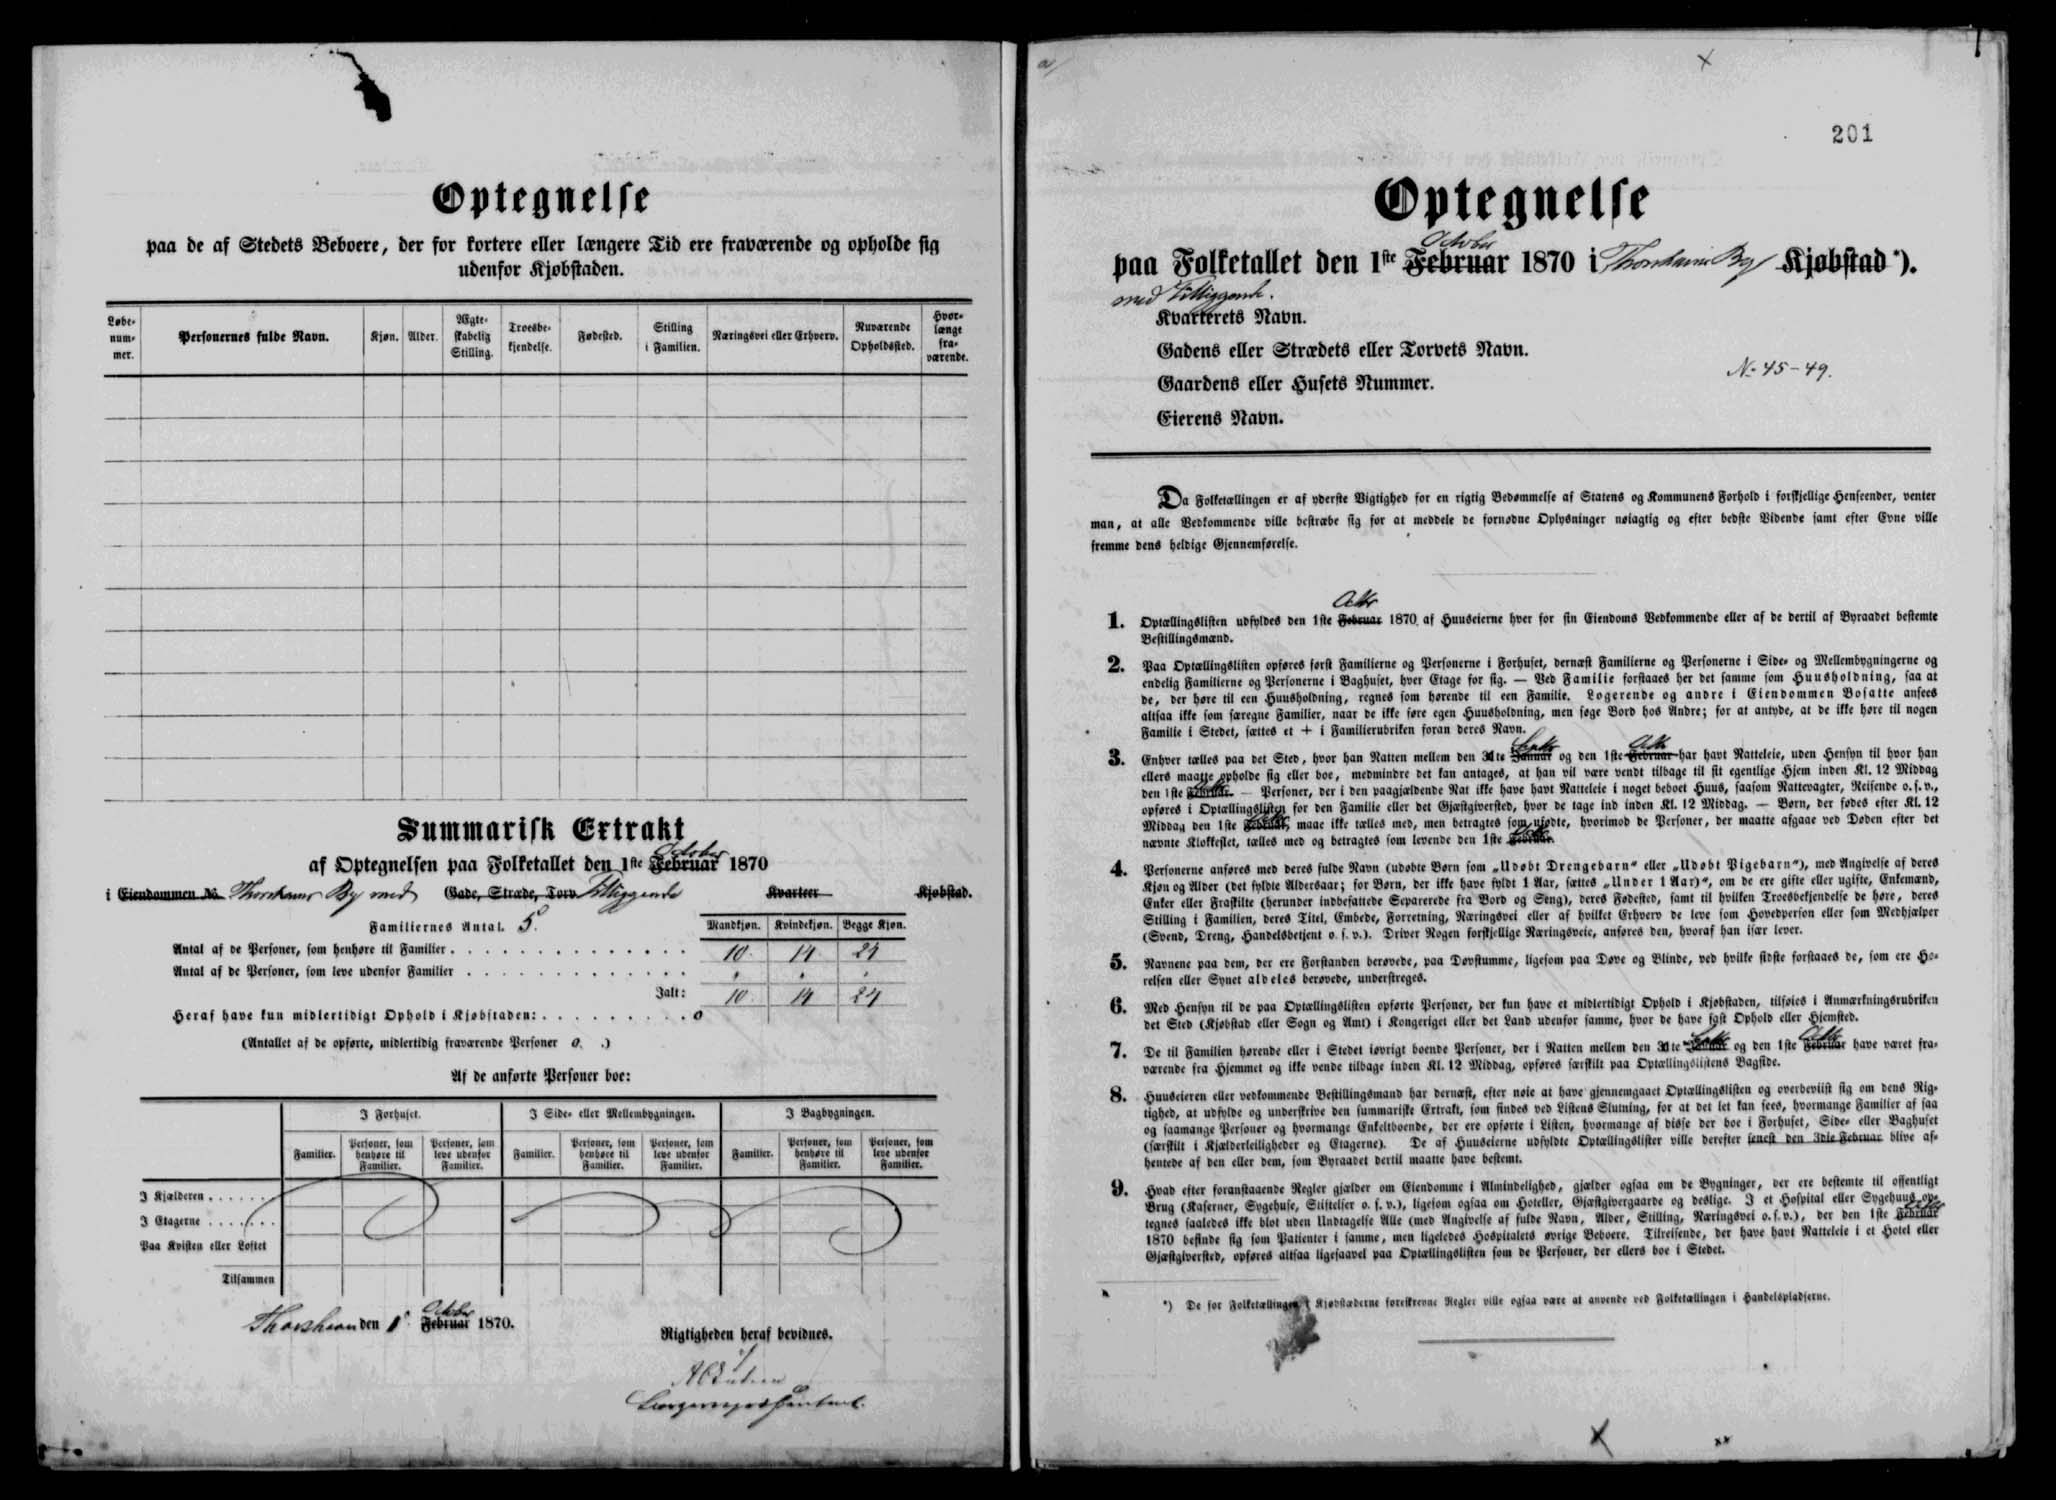 Optegnelse
paa de af Stedets Beboere, der for kortere eller længere Tid ere fraværende og opholde sig
udenfor Kjøbstaden.
Løbe-
num-
mer.
Personernes fulde Navn.
Kjøn.
Alder.
Ægte-
skabelig
Stilling.
Troesbe-
kjendelse.
Fødested.
Stilling
i Familien.
Næringsvei eller Erhverv.
Nuværende
Opholdssted.
Hvor-
længe
fra-
værende.
Summarisk Extrakt
October
af Optegnelsen paa Folketallet den 1ste Februar 1870
i Eiendommen No. Thorshavns By med Gade, Stræde, Torv Tilliggende Kvarteer Kjøbstad.
Familiernes Antal. 5.
Mandkjøn. Kvindekjøn. Begge Kjøn.
Antal af de Personer, som henhøre til Familier 10 14 24
Antal af de Personer, som leve udenfor Familier
Ialt: 10 14 24
Heraf have kun midlertidigt Ophold i Kjøbstaden: 0
(Antallet af de opførte, midlertidig fraværende Personer 0.)
Af de anførte Personer boe:
I Forhuset. I Side- eller Mellembygningen. I Bagbygningen.
Familier. Personer, som henhøre til Familier. Personer, som leve udenfor Familier. Familier. Personer, som henhøre til Familier. Personer, som leve udenfor Familier. Familier. Personer, som henhøre til Familier. Personer, som leve udenfor Familier.
I Kjælderen
I Etagerne
Paa Kvisten eller Loftet
Tilsammen
October
Thorshavn den 1 Februar 1870.
Rigtigheden heraf bevidnes.
201
Optegnelse
October
paa Folketallet den 1ste Februar 1870 i Thorshavns By Kjøbstad*).
med Tilliggende.
Kvarterets Navn.
Gadens eller Strædets eller Torvets Navn.
Gaardens eller Husets Nummer. No 45-49.
Eierens Navn.
Da Folketællingen er af yderste Vigtighed for en rigtig Bedømmelse af Statens og Kommunens Forhold i forskjellige Henseender, venter
man, at alle Vedkommende ville bestræbe sig for at meddele de fornødne Oplysninger nøiagtig og efter bedste Vidende samt efter Evne ville
fremme dens heldige Gjennemførelse.
Octbr
1. Optællingslisten udfyldes den 1ste Februar 1870 af Huuseierne hver for sin Eiendoms Vedkommende eller af de dertil af Byraadet bestemte
Bestillingsmænd.
2. Paa Optællingslisten opføres først Familierne og Personerne i Forhuset, dernæst Familierne og Personerne i Side- og Mellembygningerne og
endelig Familierne og Personerne i Baghuset, hver Etage for sig. — Ved Familie forstaaes her det samme som Huusholdning, saa at
de, der høre til een Huusholdning, regnes som hørende til een Familie. Logerende og andre i Eiendommen Bosatte ansees
altsaa ikke som særegne Familier, naar de ikke føre egen Huusholdning, men søge Bord hos Andre; for at antyde, at de ikke høre til nogen
Familie i Stedet, sættes et + i Familierubriken foran deres Navn.
Septbr Octbr
3. Enhver tælles paa det Sted, hvor han Natten mellem den 31te Januar og den 1ste Februar har havt Natteleie, uden Hensyn til hvor han
ellers maatte opholde sig eller boe, medmindre det kan antages, at han vil være vendt tilbage til sit egentlige Hjem inden Kl. 12 Middag
den 1ste Februar. — Personer, der i den paagjældende Nat ikke have havt Natteleie i noget beboet Huus, saasom Nattevagter, Reisende o. s. v.,
opføres i Optællingslisten for den Familie eller det Gjæstgiversted, hvor de tage ind inden Kl. 12 Middag. — Børn, der fødes efter Kl. 12
Middag den 1ste Februar, maae ikke tælles med, men betragtes som ufødte, hvorimod de Personer, der maatte afgaae ved Døden efter det
nævnte Klokkeslet, tælles med og betragtes som levende den 1ste Februar.
4. Personerne anføres med deres fulde Navn (udøbte Børn som „Udøbt Drengebarn“ eller „Udøbt Pigebarn“), med Angivelse af deres
Kjøn og Alder (det fyldte Aldersaar; for Børn, der ikke have fyldt 1 Aar, sættes „Under 1 Aar)“, om de ere gifte eller ugifte, Enkemænd,
Enker eller Fraskilte (herunder indbefattede Separerede fra Bord og Seng), deres Fødested, samt til hvilken Troesbekjendelse de høre, deres
Stilling i Familien, deres Titel, Embede, Forretning, Næringsvei eller af hvilket Erhverv de leve som Hovedperson eller som Medhjælper
(Svend, Dreng, Handelsbetjent o. s. v.). Driver Nogen forskjellige Næringsveie, anføres den, hvoraf han især lever.
5. Navnene paa dem, der ere Forstanden berøvede, paa Døvstumme, ligesom paa Døve og Blinde, ved hvilke sidste forstaaes de, som ere Hø-
relsen eller Synet aldeles berøvede, understreges.
6. Med Hensyn til de paa Optællingslisten opførte Personer, der kun have et midlertidigt Ophold i Kjøbstaden, tilføies i Anmærkningsrubriken
det Sted (Kjøbstad eller Sogn og Amt) i Kongeriget eller det Land udenfor samme, hvor de have fast Ophold eller Hjemsted.
Septbr Octbr
7. De til Familien hørende eller i Stedet iøvrigt boende Personer, der i Natten mellem den 31te Januar og den 1ste Februar have været fra-
værende fra Hjemmet og ikke vende tilbage inden Kl. 12 Middag, opføres særskilt paa Optællingslistens Bagside.
8. Huuseieren eller vedkommende Bestillingsmand har dernæst, efter nøie at have gjennemgaaet Optællingslisten og overbeviist sig om dens Rig-
tighed, at udfylde og underskrive den summariske Extrakt, som findes ved Listens Slutning, for at det let kan sees, hvormange Familier af saa
og saamange Personer og hvormange Enkeltboende, der ere opførte i Listen, hvormange af disse der boe i Forhuset, Side- eller Baghuset
(særskilt i Kjælderleiligheder og Etagerne). De af Huuseierne udfyldte Optællingslister ville derefter senest den 3die Februar blive af-
hentede af den eller dem, som Byraadet dertil maatte have bestemt.
9. Hvad efter foranstaaende Regler gjælder om Eiendomme i Almindelighed, gjælder ogsaa om de Bygninger, der ere bestemte til offentligt
Brug (Kaserner, Sygehuse, Stiftelser o. s. v.), ligesom ogsaa om Hoteller, Gjæstgivergaarde og deslige. I et Hospital eller Sygehuus op-
tegnes saaledes ikke blot uden Undtagelse Alle (med Angivelse af fulde Navn, Alder, Stilling, Næringsvei o. s. v.), der den 1ste Februar
1870 befinde sig som Patienter i samme, men ligeledes Hospitalets øvrige Beboere. Tilreisende, der have havt Natteleie i et Hotel eller
Gjæstgiversted, opføres altsaa ligesaavel paa Optællingslisten som de Personer, der ellers boe i Stedet.
*) De for Folketællingen i Kjøbstæderne foreskrevne Regler ville ogsaa være at anvende ved Folketællingen i Handelspladserne.